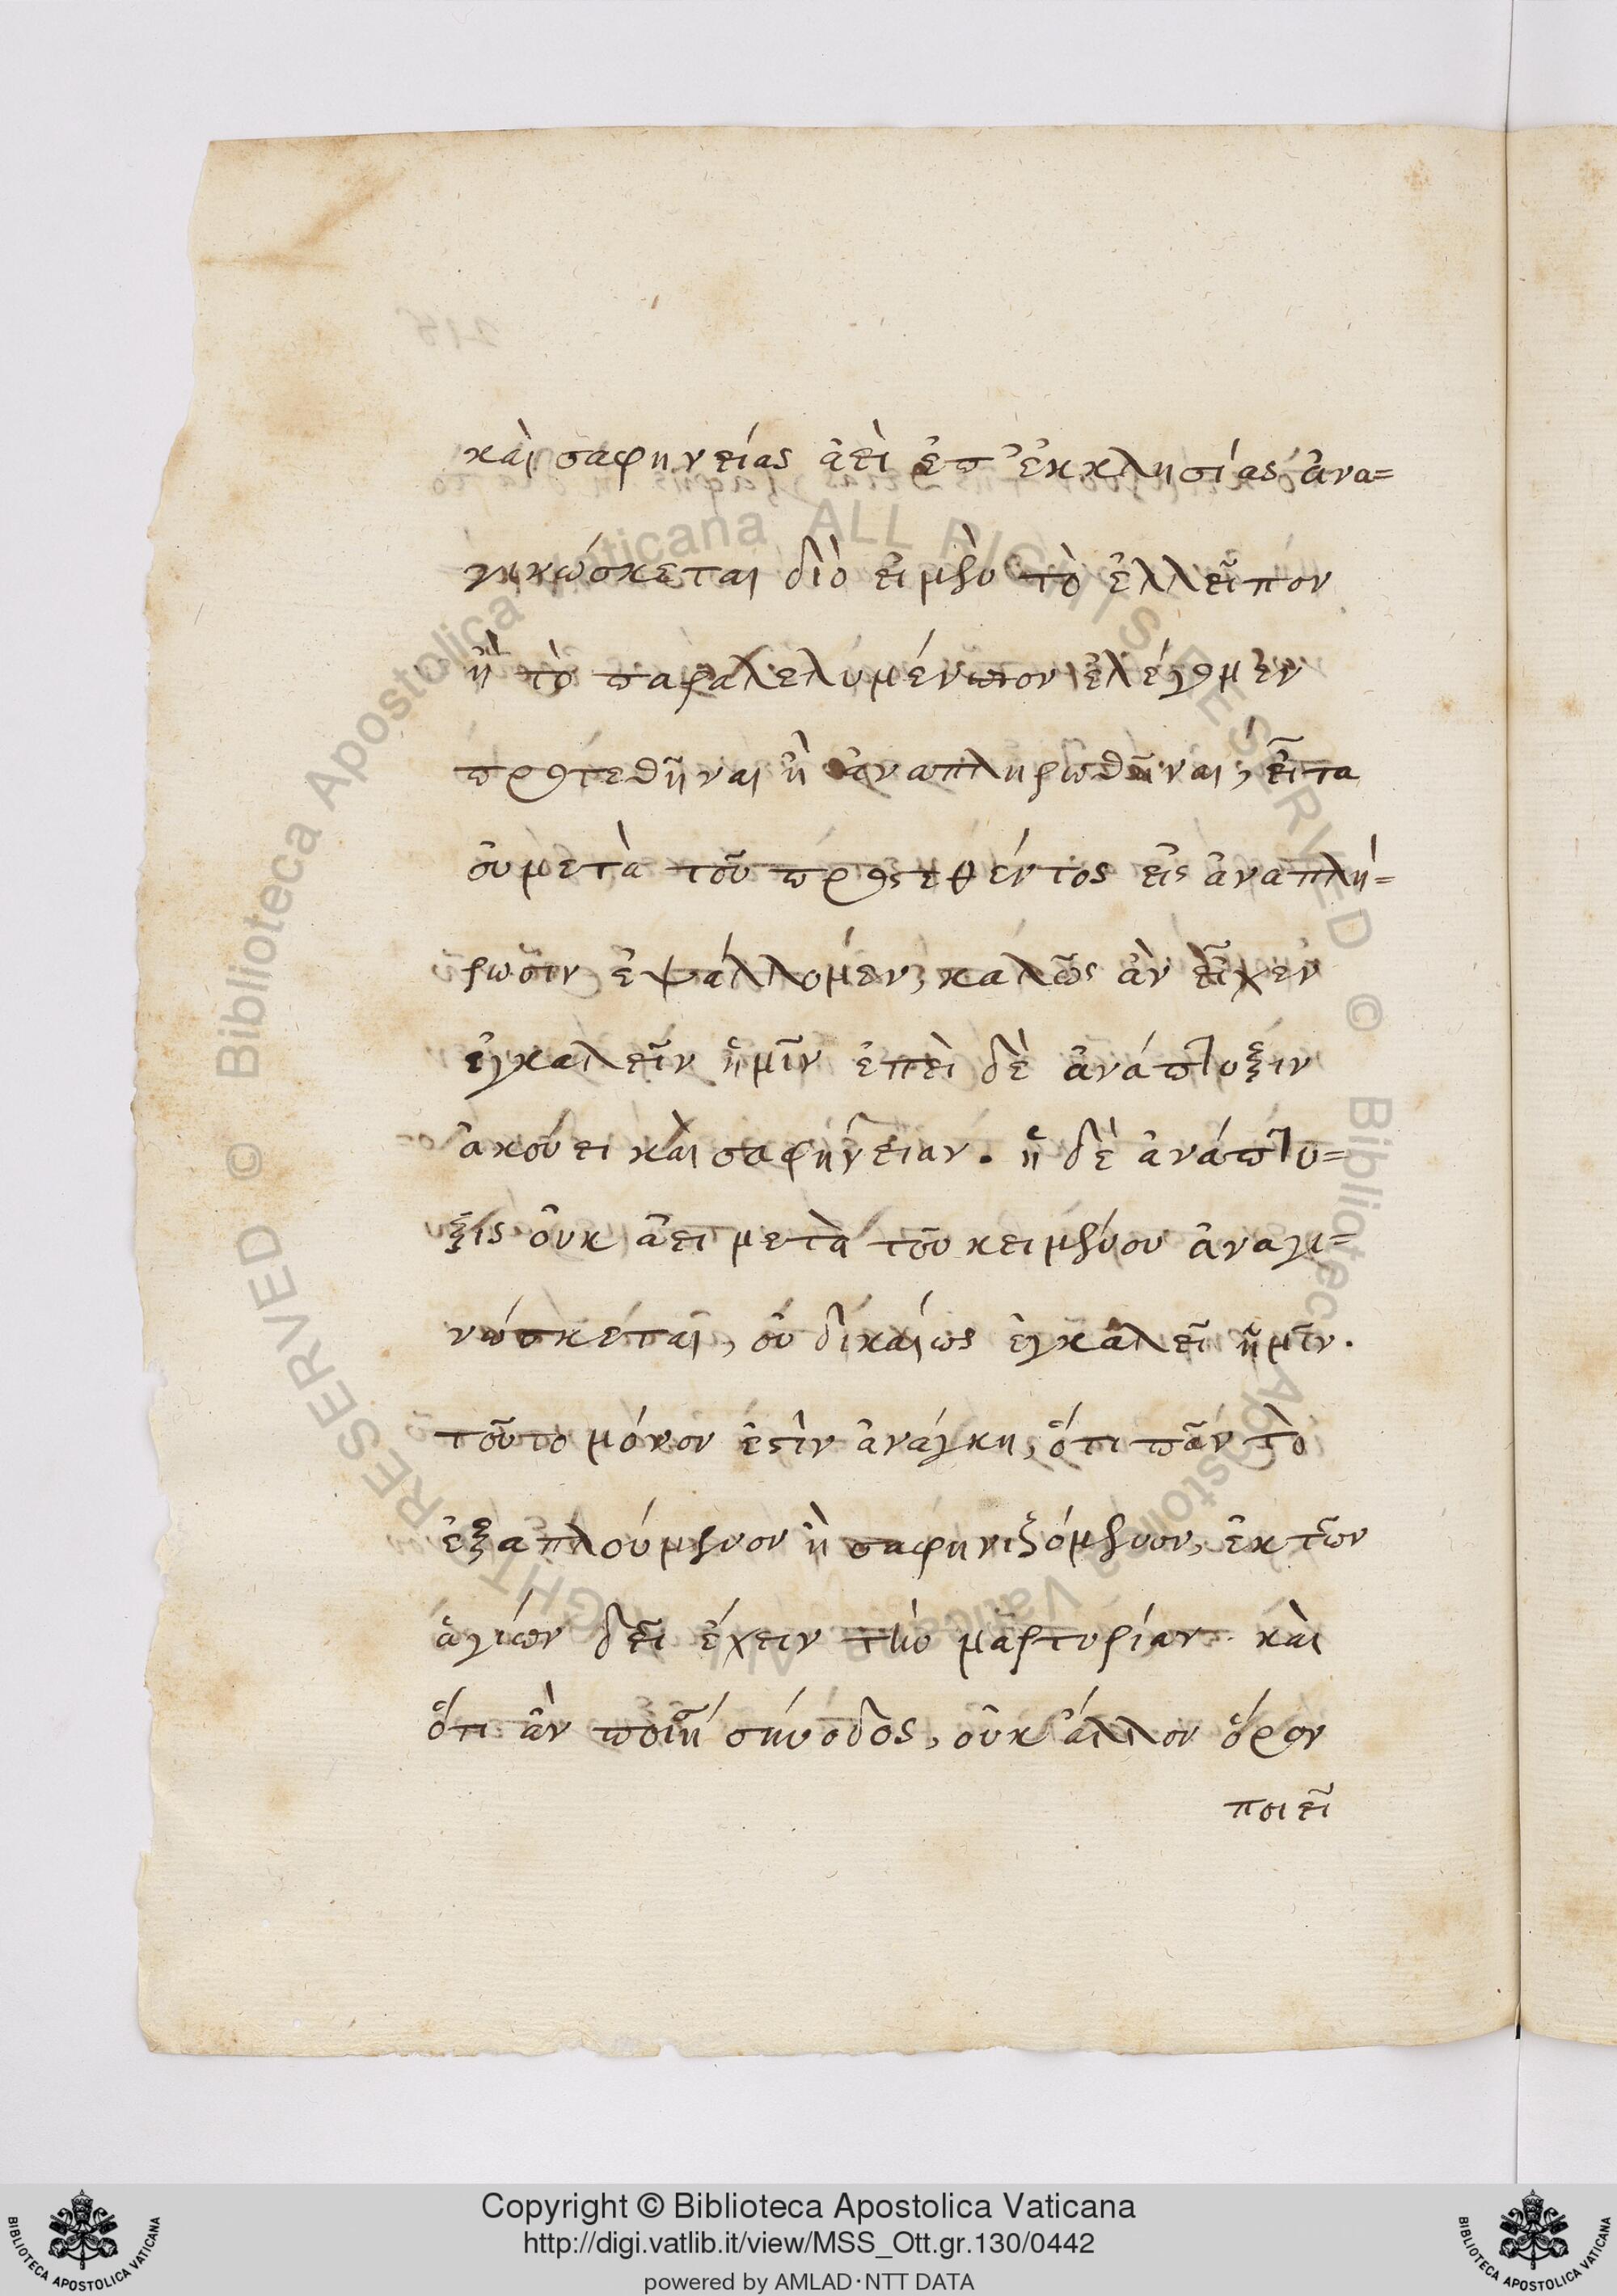 καὶ σαφηνείας ἀεὶ ἐπ' ἐκκλησίας ἀνα=
γινώσκεται διὸ εἰ μὲν τὸ ἐλλεῖπον
ἢ τὸ παραλελυμένον ἐλέγομεν
προστεθῆναι ἢ ἀναπληρωθῆναι, εἶτα
οὐ μετὰ τοῦ προςτεθέντος εἰς ἀναπλή=
ρωσιν ἐψάλλομεν, καλῶς ἂν εἶχεν
ἐγκαλεῖν ἡμῖν ἐπεὶ δὲ ἀνάπτυξιν
ἀκούει καὶ σαφήνειαν. ἡ δὲ ἀνάπτυ=
ξις οὐκ ἀεὶ μετὰ τοῦ κειμένου ἀναγι=
νώσκεται, οὐ δικαίως ἐγκαλεῖ ἡμῖν.
τοῦτο μόνον ἐστὶν ἀνάγκη, ὅτι πᾶν τὸ
ἐξαπλούμενον ἢ σαφηνιζόμενον, ἐκ τῶν
ἁγίων δεῖ ἔχειν τὴν μαρτυρίαν. καὶ
ὅτι ἂν ποιῇ σύνοδος, οὐκ ἄλλον ὅρον
ποιεῖ
Copyright © Biblioteca Apostolica Vaticana
http://digi.vatlib.it/view/MSS_Ott.gr.130/0442
powered by AMLAD·NTT DATA
BIBLIOTECA APOSTOLICA VATICANA
BIBLIOTECA APOSTOLICA VATICANA
Biblioteca Apostolica Vaticana ALL RIGHTS RESERVED © Biblioteca Apostolica Vaticana ALL RIGHTS RESERVED ©